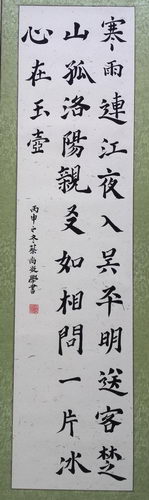 寒雨連江夜入吳平明送客楚
山孤洛陽親友如相問一片冰
心在玉壺
丙申之冬蔡尚敬學書